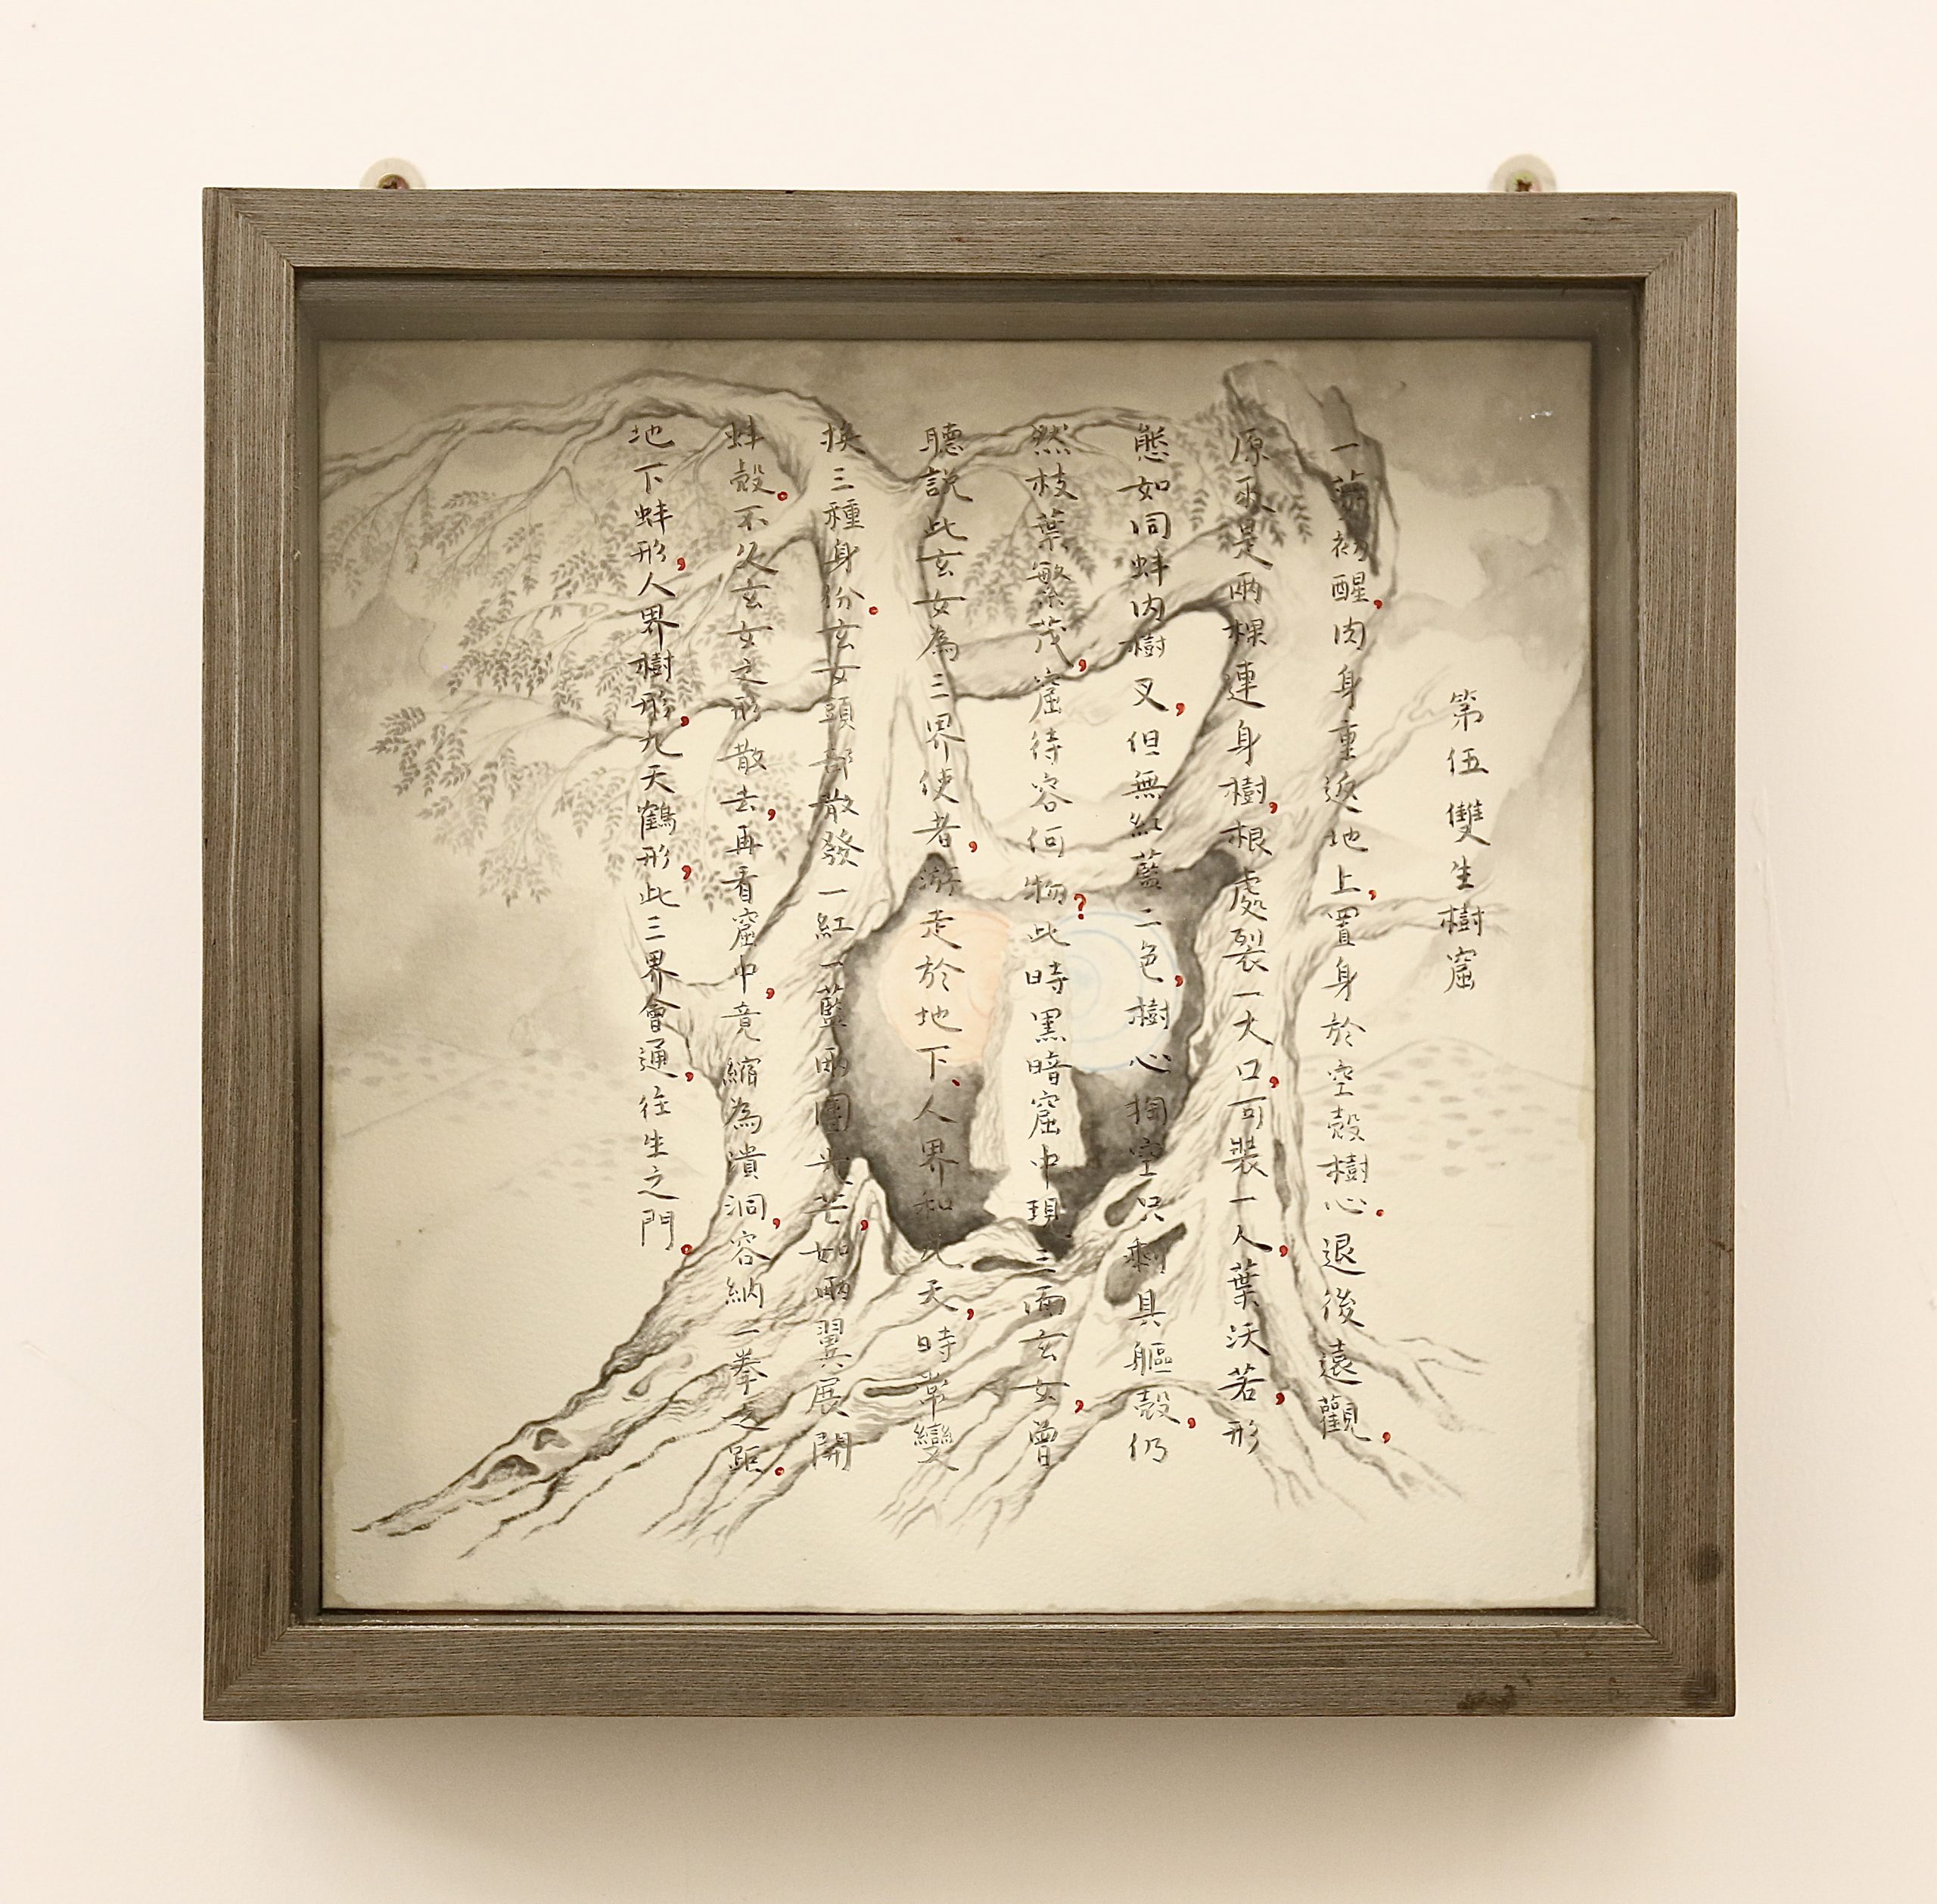 第伍雙生樹窟
一 初醒。肉身重返地上，置身於空殼樹心。退後遠觀，
原來是兩棵連身樹，根處裂一大口，可裝一人，葉沃若，形
態如同蚌內樹叉，但無紅藍二色，樹心掏空只剩具軀殼，仍
然枝葉繁茂，窟待容何物？此時黑暗窟中現三面玄女，曾
聽説此玄女為三界使者，游走於地下、人界和九天，時常變
換三種身份。玄女頭部散發一紅一藍兩團光芒，如兩翼展開
蚌殼。不久玄女之形散去，再看窟中，竟縮為潰洞，容納一拳之距。
地下蚌形，人界樹形，九天鶴形，此三界會通，往生之門。